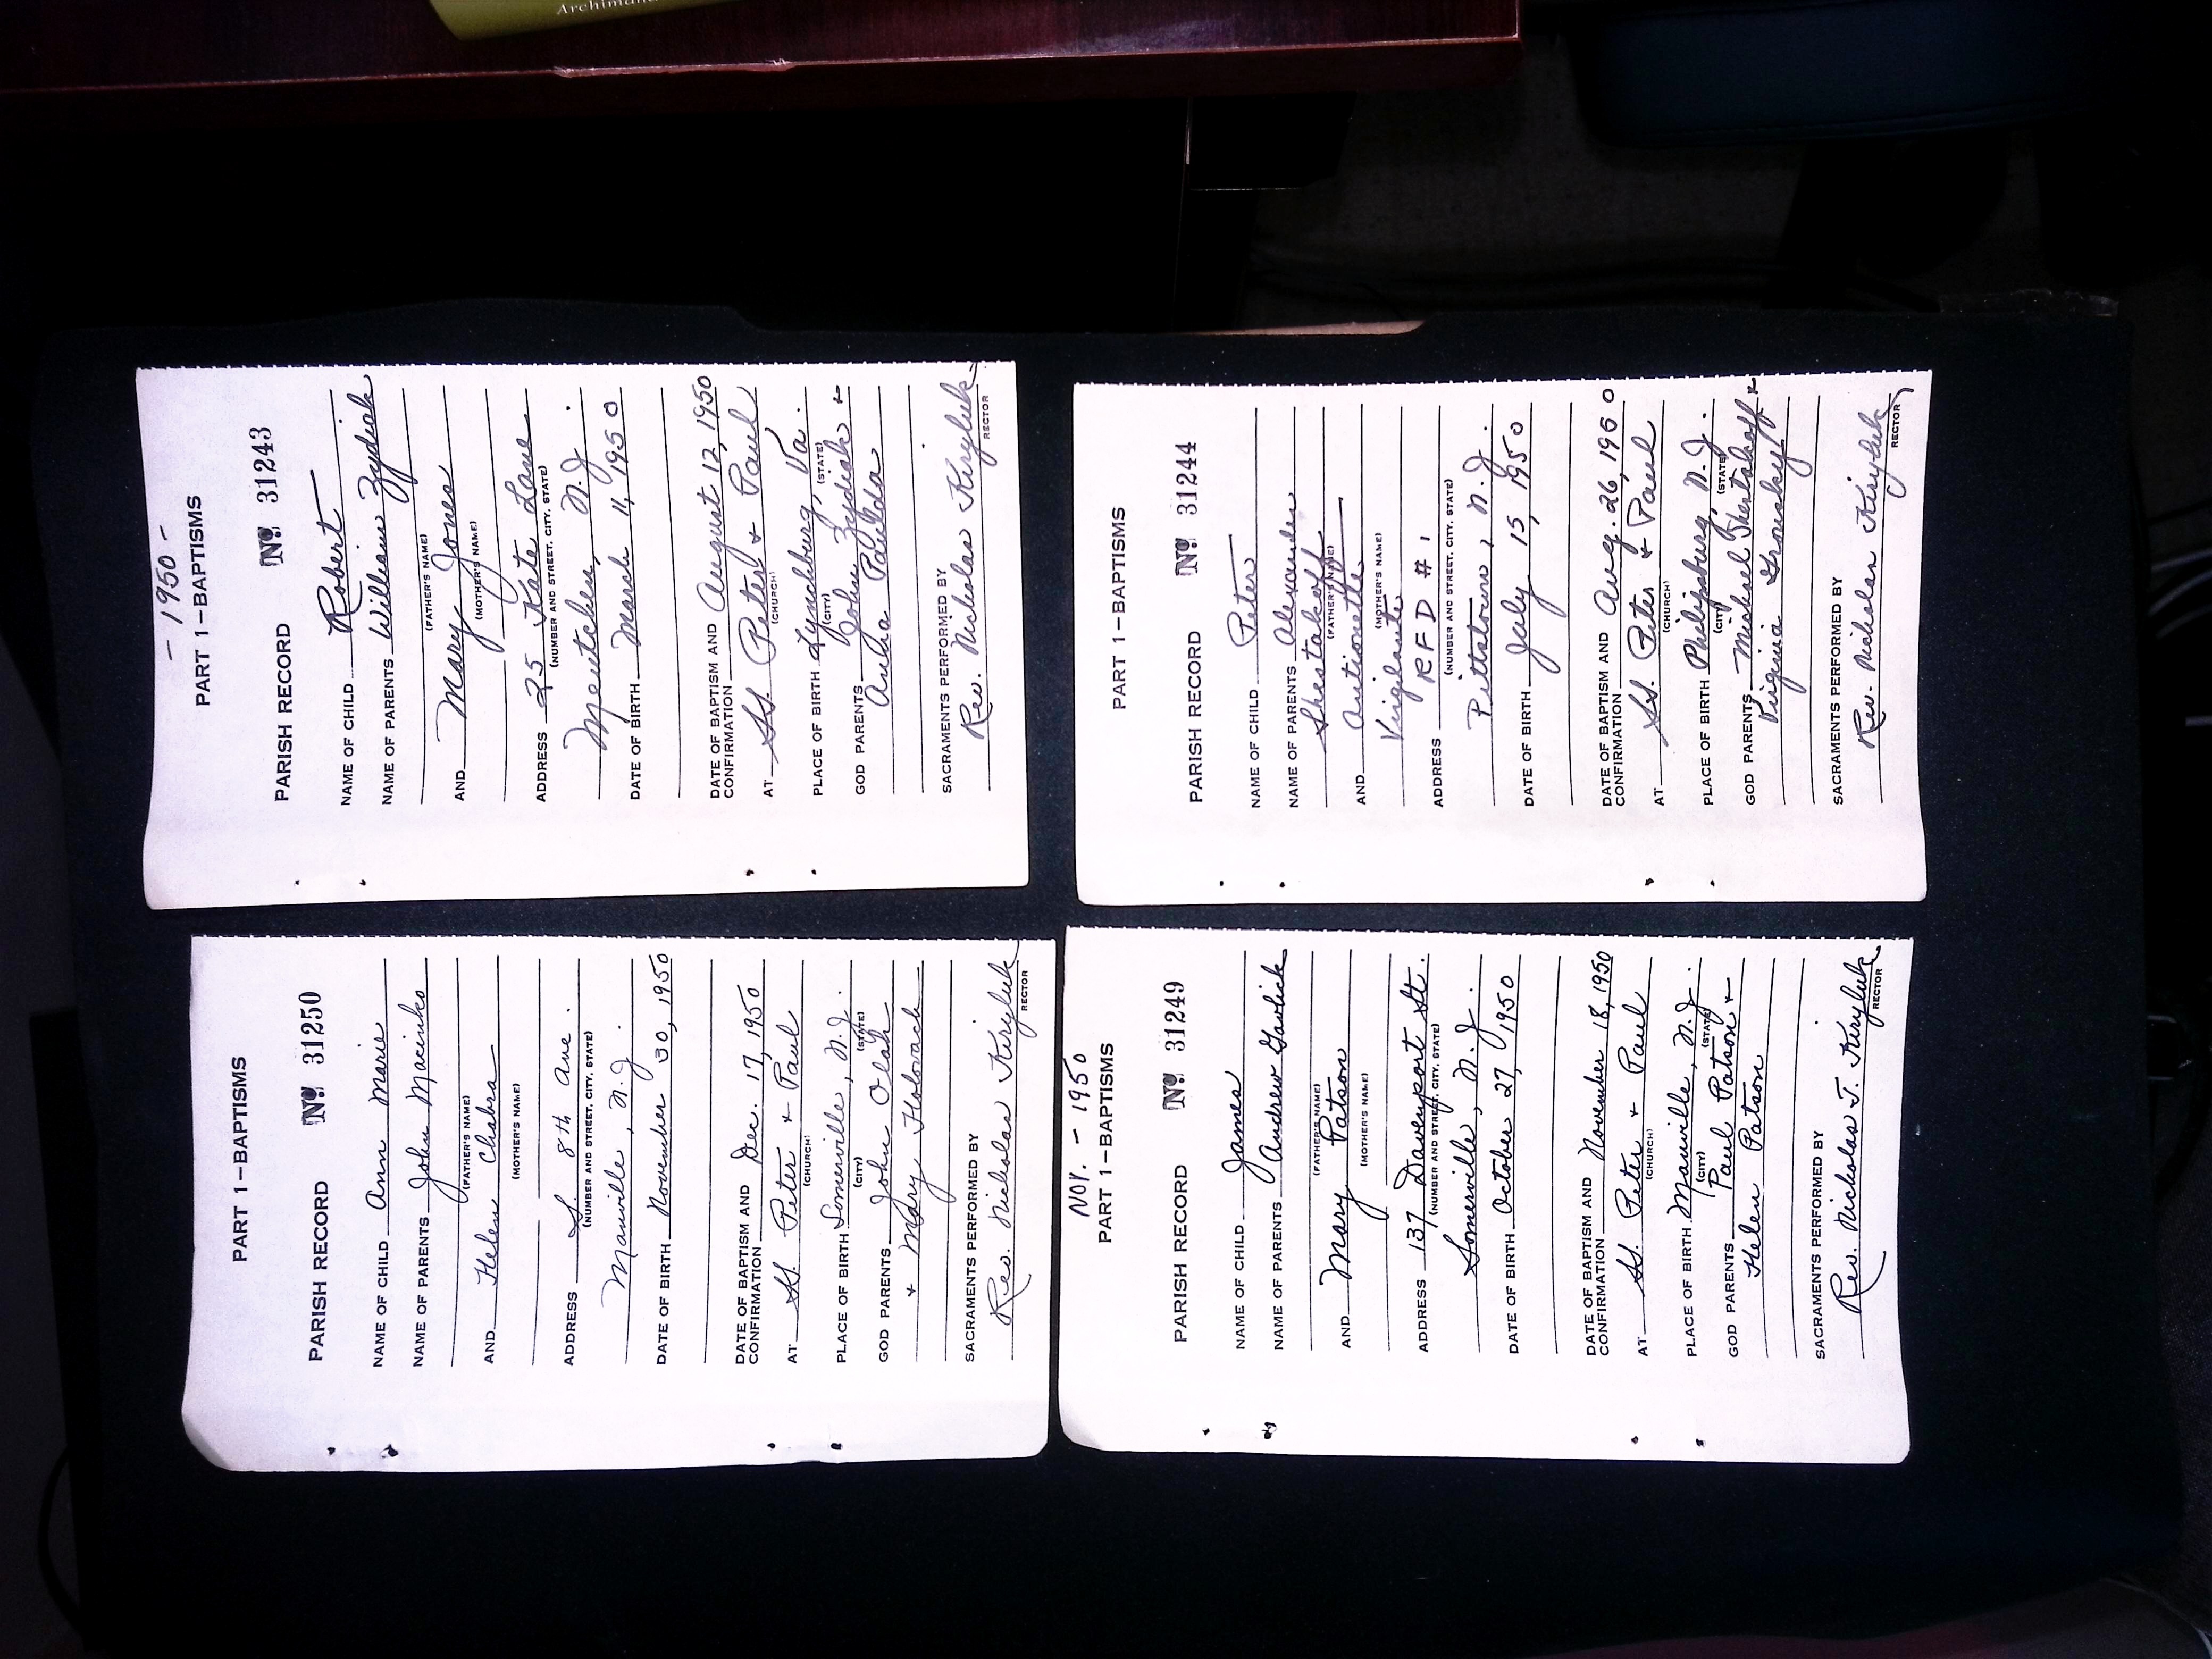 PART 1—BAPTISMS
PARISH RECORD No. 31250
NAME OF CHILD Ann Marie
NAME OF PARENTS John Macinko
(FATHER'S NAME)
AND Helen Chabra
(MOTHER'S NAME)
ADDRESS S. 8th Ave.
(NUMBER AND STREET, CITY, STATE)
Manville, N.J.
DATE OF BIRTH November 30, 1950
DATE OF BAPTISM AND
CONFIRMATION Dec. 17, 1950
AT SS. Peter + Paul
(CHURCH)
PLACE OF BIRTH Somerville, N.J.
(CITY) (STATE)
GOD PARENTS John Olah
+ Mary Holovach
SACRAMENTS PERFORMED BY
Rev. Nicholas Kiryluk
RECTOR
- 1950 -
PART 1—BAPTISMS
PARISH RECORD No. 31243
NAME OF CHILD Robert
NAME OF PARENTS William Zydiak
(FATHER'S NAME)
AND Mary Jones
(MOTHER'S NAME)
ADDRESS 25 Kate Lane
(NUMBER AND STREET, CITY, STATE)
Meutchen, N.J.
DATE OF BIRTH March 11, 1950
DATE OF BAPTISM AND
CONFIRMATION August 12, 1950
AT SS. Peter + Paul
(CHURCH)
PLACE OF BIRTH Lynchburg, Va.
(CITY) (STATE)
GOD PARENTS John Zydiak +
Anna Paulda
SACRAMENTS PERFORMED BY
Rev. Nicholas Kiryluk
RECTOR
NOV. - 1950
PART 1—BAPTISMS
PARISH RECORD No. 31249
NAME OF CHILD James
NAME OF PARENTS Andrew Gavlick
(FATHER'S NAME)
AND Mary Patson
(MOTHER'S NAME)
ADDRESS 137 Davenport St.
(NUMBER AND STREET, CITY, STATE)
Somerville, N.J.
DATE OF BIRTH October 27, 1950
DATE OF BAPTISM AND
CONFIRMATION November 18, 1950
AT SS. Peter + Paul
(CHURCH)
PLACE OF BIRTH Manville, N.J.
(CITY) (STATE)
GOD PARENTS Paul Patson +
Helen Patson
SACRAMENTS PERFORMED BY
Rev. Nickolas T. Kiryluk
RECTOR
PART 1—BAPTISMS
PARISH RECORD No. 31244
NAME OF CHILD Peter
NAME OF PARENTS Alexander
Shestakoff
(FATHER'S NAME)
AND Antionette
(MOTHER'S NAME)
Virgilante
ADDRESS RFD # 1
(NUMBER AND STREET, CITY, STATE)
Pittstown, N.J.
DATE OF BIRTH July 15, 1950
DATE OF BAPTISM AND
CONFIRMATION Aug. 26, 1950
AT SS. Peter + Paul
(CHURCH)
PLACE OF BIRTH Philipsburg, N.J.
(CITY) (STATE)
GOD PARENTS Michael Shestakoff +
Virginia Gronsky
SACRAMENTS PERFORMED BY
Rev. Nicholas Kiryluk
RECTOR